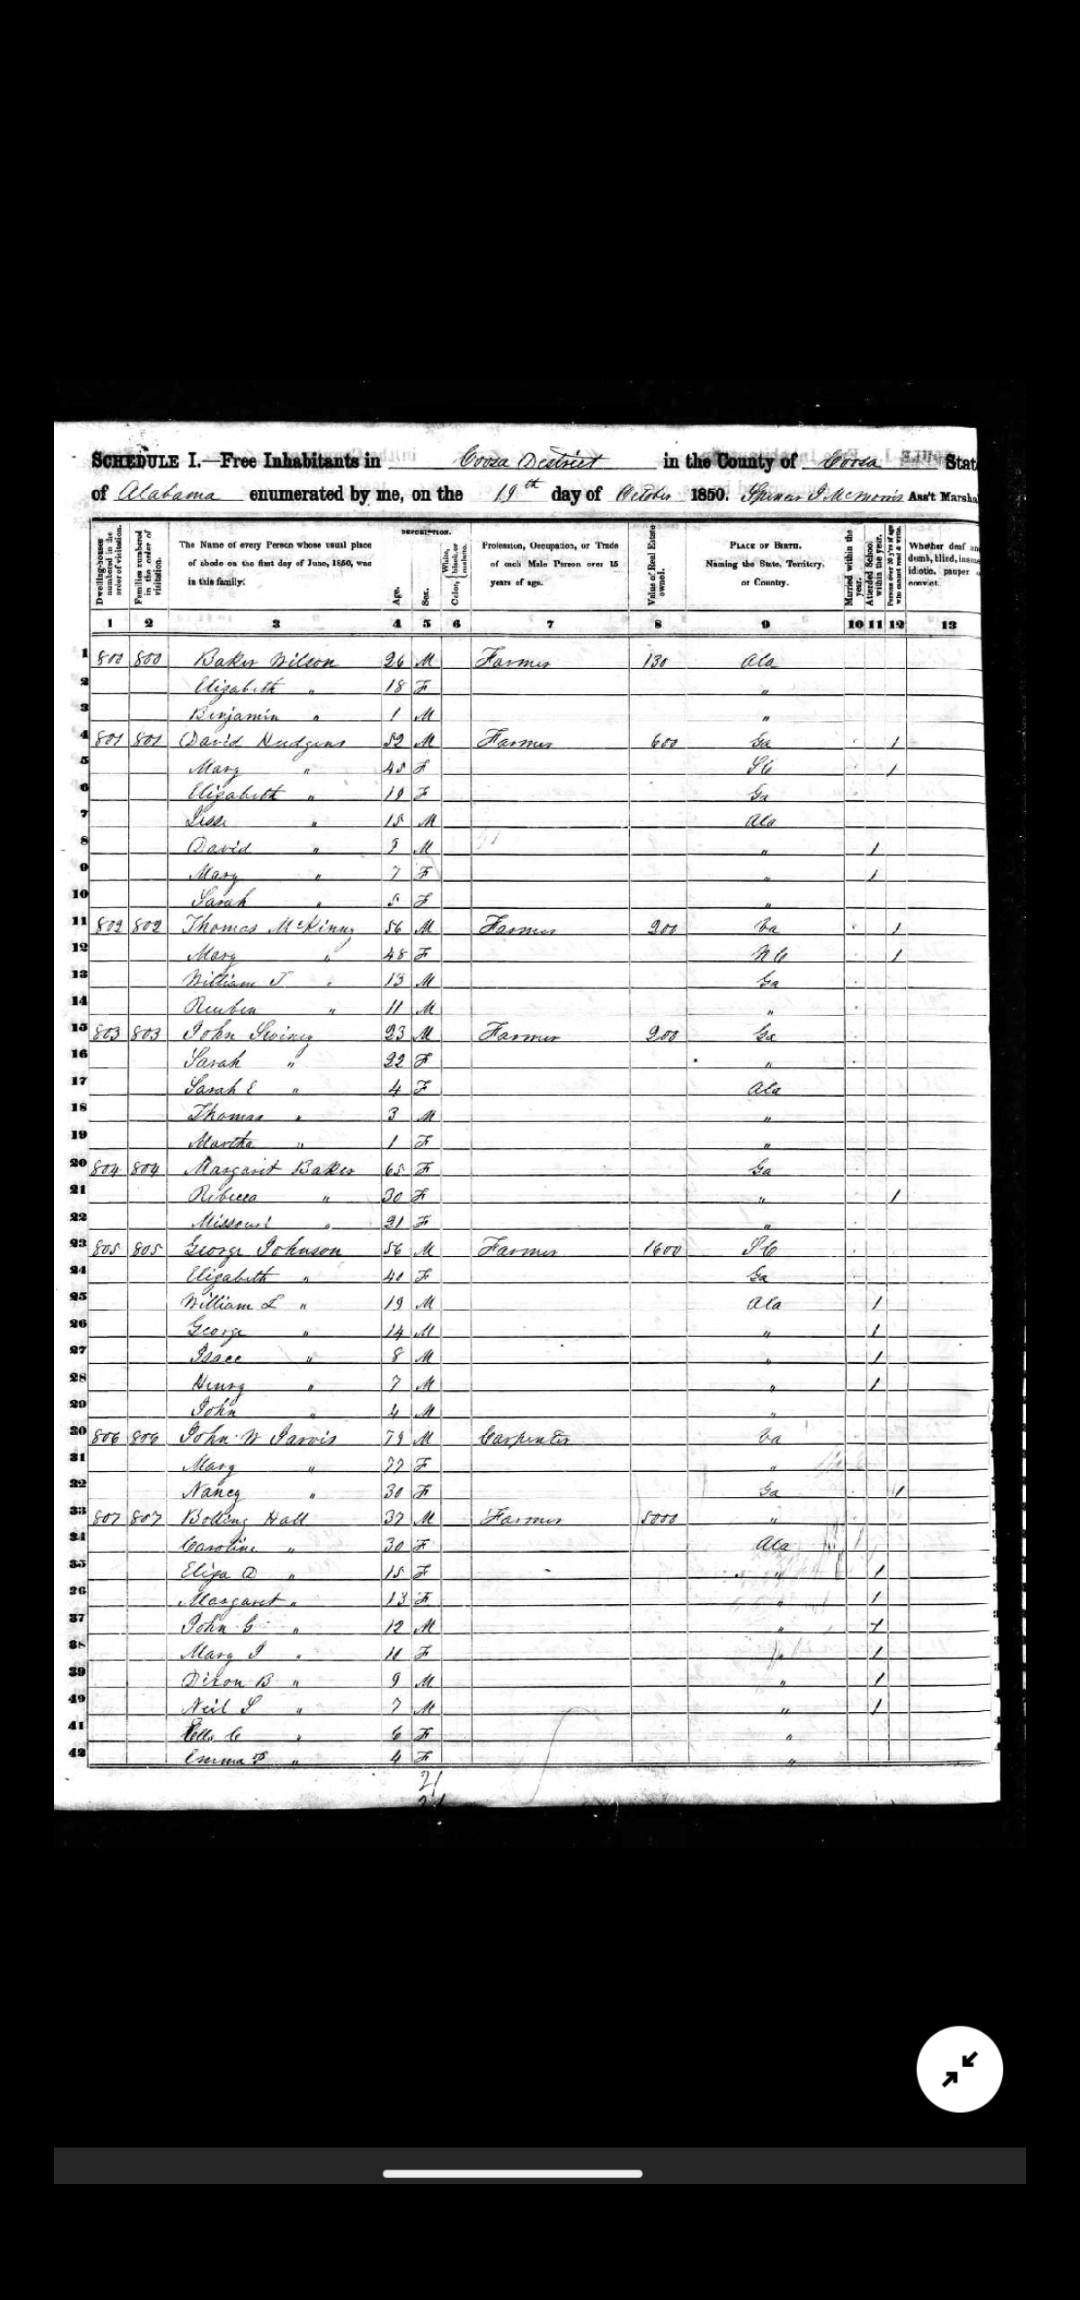 SCHEDULE I.—Free Inhabitants in Coosa District in the County of Coosa Stat
of Alabama enumerated by me, on the 19th day of October 1850. McMorris Ass't Marsha
Dwelling-houses numbered in the order of visitation.
Families numbered in the order of visitation.
The Name of every Person whose usual place of abode on the first day of June, 1850, was in this family.
DESCRIPTION.
Age.
Sex.
Color, { White, black, or mulatto.
Profession, Occupation, or Trade of each Male Person over 15 years of age.
Value of Real Estate owned.
PLACE OF BIRTH. Naming the State, Territory, or Country.
Married within the year.
Attended School within the year.
Persons over 20 y'rs of age who cannot read & write.
Whether deaf an dumb, blind, insan idiotic, pauper convict.
1 2 3 4 5 6 7 8 9 10 11 12 13
1 800 800 Baker Wilson 26 M Farmer 130 Ala
2 Elizabeth " 18 F "
3 Benjamin " 1 M "
4 801 801 David Hudgens 52 M Farmer 600 Ga 1
5 Mary " 45 F SC 1
6 Elizabeth " 19 F Ga
7 Jesse " 15 M Ala
8 David " 9 M " 1
9 Mary " 7 F " 1
10 Sarah " 5 F "
11 802 802 Thomas McKinny 56 M Farmer 200 Va 1
12 Mary " 48 F NC 1
13 William J " 13 M Ga
14 Reuben " 11 M "
15 803 803 John Swiney 23 M Farmer 200 Ga
16 Sarah " 22 F "
17 Sarah E " 4 F Ala
18 Thomas " 3 M "
19 Martha " 1 F "
20 804 804 Margaret Baker 65 F Ga
21 Rebecca " 30 F " 1
22 Missouri " 21 F "
23 805 805 George Johnson 56 M Farmer 1600 SC
24 Elizabeth " 40 F Ga
25 William L " 19 M Ala 1
26 George " 14 M " 1
27 Isaac " 8 M " 1
28 Henry " 7 M " 1
29 John " 4 M "
30 806 806 John W Jarvis 79 M Carpenter Va
31 Mary " 77 F "
32 Nancy " 30 F Ga 1
33 807 807 Bolling Hall 37 M Farmer 5000 "
34 Caroline " 30 F Ala
35 Eliza A " 15 F " 1
36 Margaret " 13 F " 1
37 John G " 12 M " 1
38 Mary J " 11 F " 1
39 Dixon B " 9 M " 1
40 Neil S " 7 M " 1
41 C " 6 F "
42 Emma " 4 F "
21